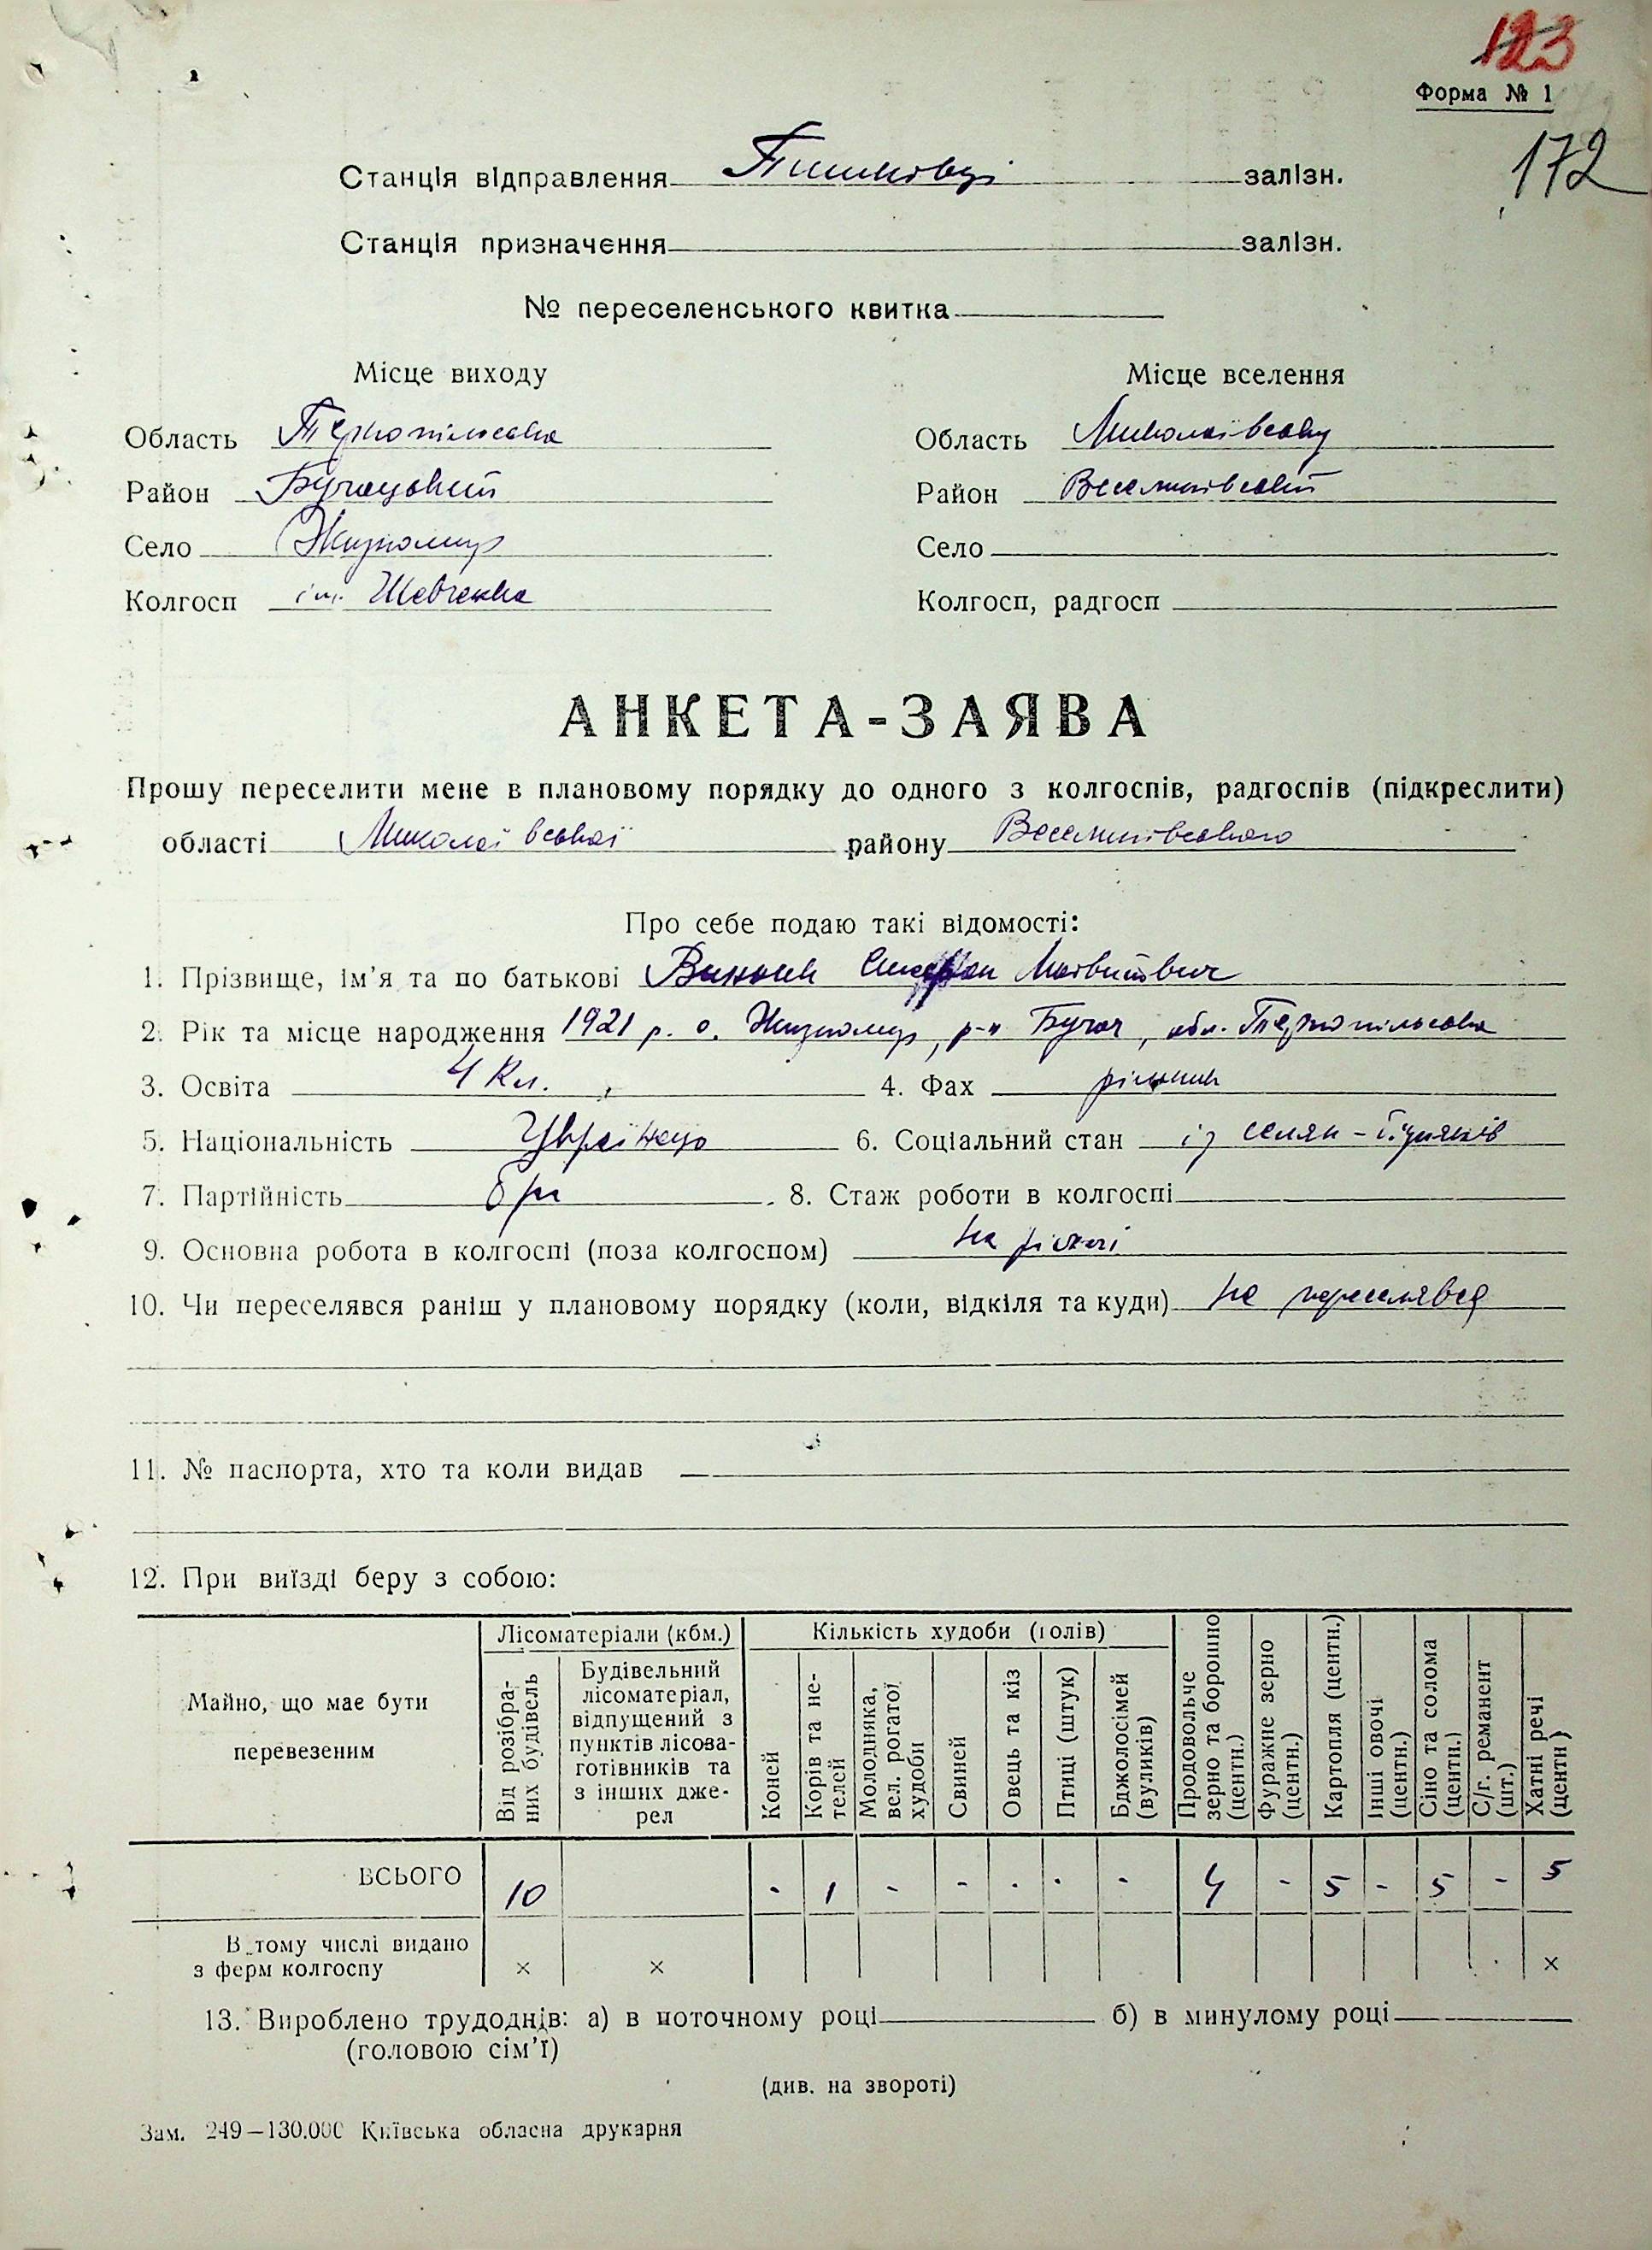 123
Форма № 1
172
Станція відправлення Пишківці залізн.
Станція призначення залізн.
№ переселенського квитка
Місце виходу Місце вселення
Область Тернопільська Область Миколаївську
Район Бучацький Район Веселинівський
Село Жизномир Село
Колгосп ім. Шевченка Колгосп, радгосп
АНКЕТА-ЗАЯВА
Прошу переселити мене в плановому порядку до одного з колгоспів, радгоспів (підкреслити)
області Миколаївської району Веселинівського
Про себе подаю такі відомості:
1. Прізвище, ім’я та по батькові Матвійович
2. Рік та місце народження 1921 р. с. Жизномир, р-н Бучач, обл. Тернопільська
3. Освіта 4 кл. 4. Фах рільник
5. Національність Українець 6. Соціальний стан із селян-бідняків
7. Партійність бп 8. Стаж роботи в колгоспі
9. Основна робота в колгоспі (поза колгоспом) на рільні
10. Чи переселявся раніш у плановому порядку (коли, відкіля та куди) не переселявся
11. № паспорта, хто та коли видав
12. При виїзді беру з собою:
Майно, що має бути перевезеним
Лісоматеріали (кбм.)
Від розібраних будівель
Будівельний лісоматеріал, відпущений з пунктів лісозаготівників та з інших джерел
Кількість худоби (голів)
Коней
Корів та нетелей
Молодняка, вел. рогатої худоби
Свиней
Овець та кіз
Птиці (штук)
Бджолосімей (вуликів)
Продовольче зерно та борошно (центн.)
Фуражне зерно (центн.)
Картопля (центн.)
Інші овочі (центн.)
Сіно та солома (центн.)
С/г. реманент (шт.)
Хатні речі (центн)
ВСЬОГО 10 - 1 - - - - - 4 - 5 - 5 - 5
В тому числі видано з ферм колгоспу × × ×
13. Вироблено трудоднів: а) в поточному році б) в минулому році
(головою сім’ї)
(див. на звороті)
Зам. 249—130.000 Київська обласна друкарня